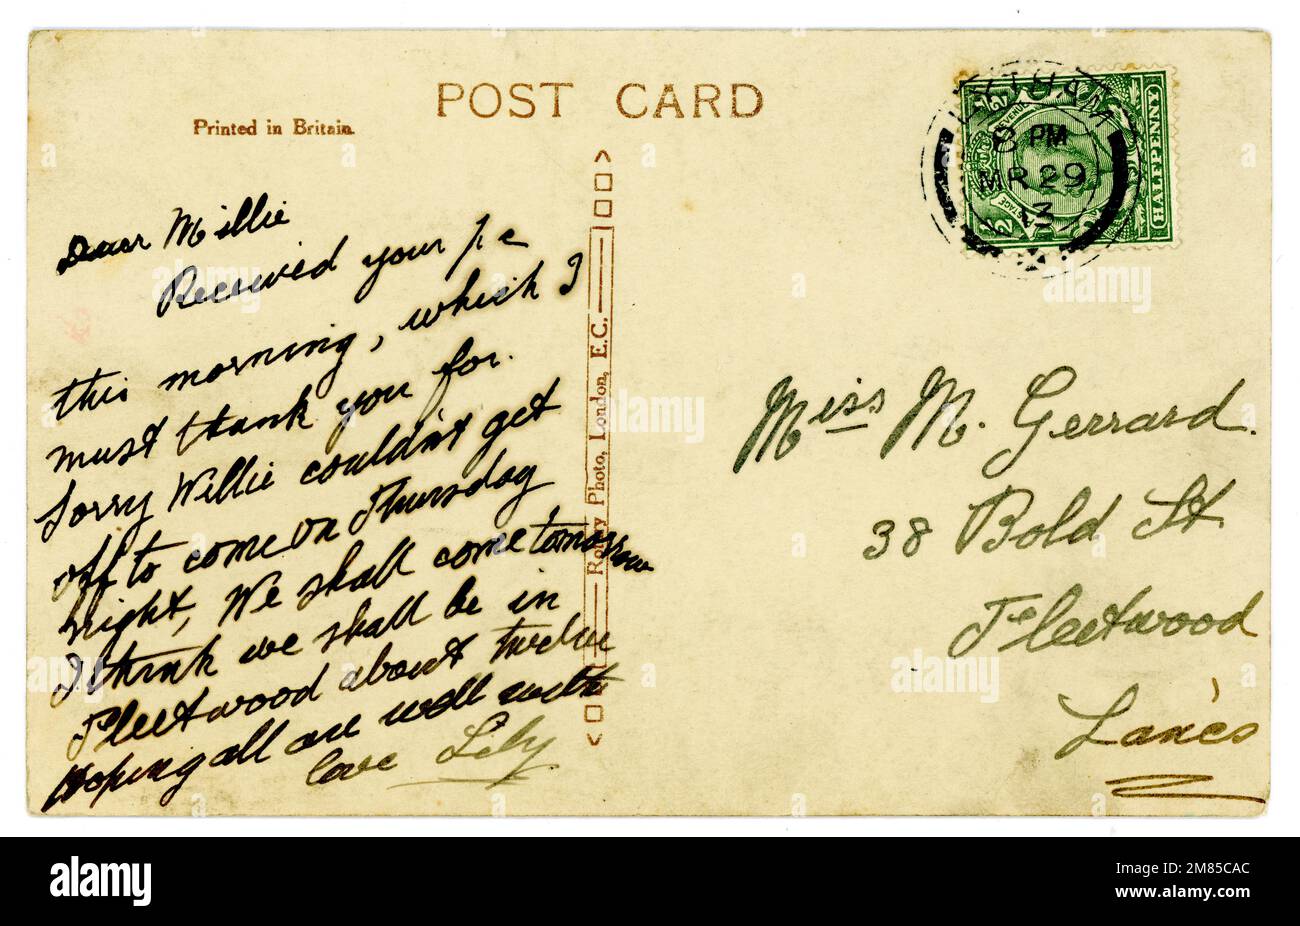 POST CARD
Printed in Britain
LYTHAM
8 PM
MR 29
13
HALFPENNY
Dear Millie
Received your p c
this morning, which I
must thank you for.
Sorry Willie couldn't get
off to come on Thursday
night, We shall come tomorrow
I think we shall be in
Fleetwood about twelve
Hoping all are well with
love Lily
Rotary Photo, London, E.C.
Miss M. Gerrard.
38 Bold St
Fleetwood
Lancs
alamy
Image ID: 2M85CAC
www.alamy.com